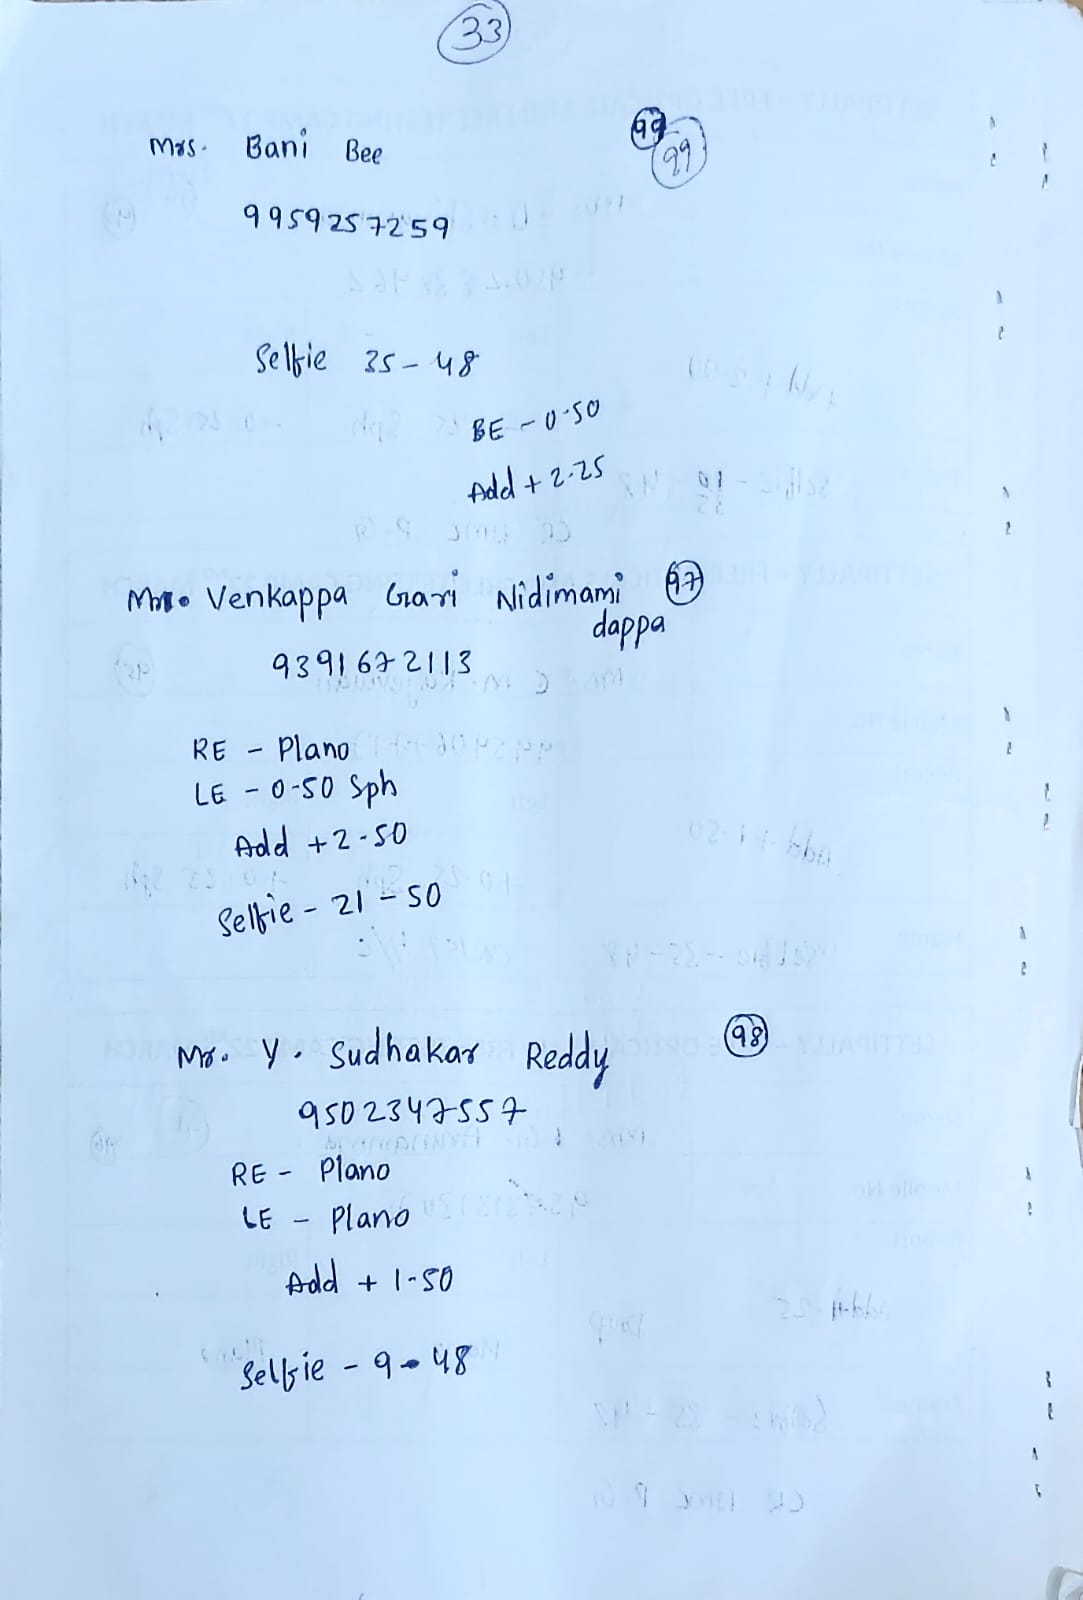 33
Mrs. Bani Bee 99 99
9959257259
Selfie 35-48
BE -0.50
Add +2.25
Venkappa Gari Nidimami 97
dappa
9391672113
RE - Plano
LE -0-50 Sph
Add +2-50
Selfie - 21 - 50
Mr. Y. Sudhakar Reddy 98
9502347557
RE - Plano
LE - Plano
Add + 1-50
Selfie - 9 - 48